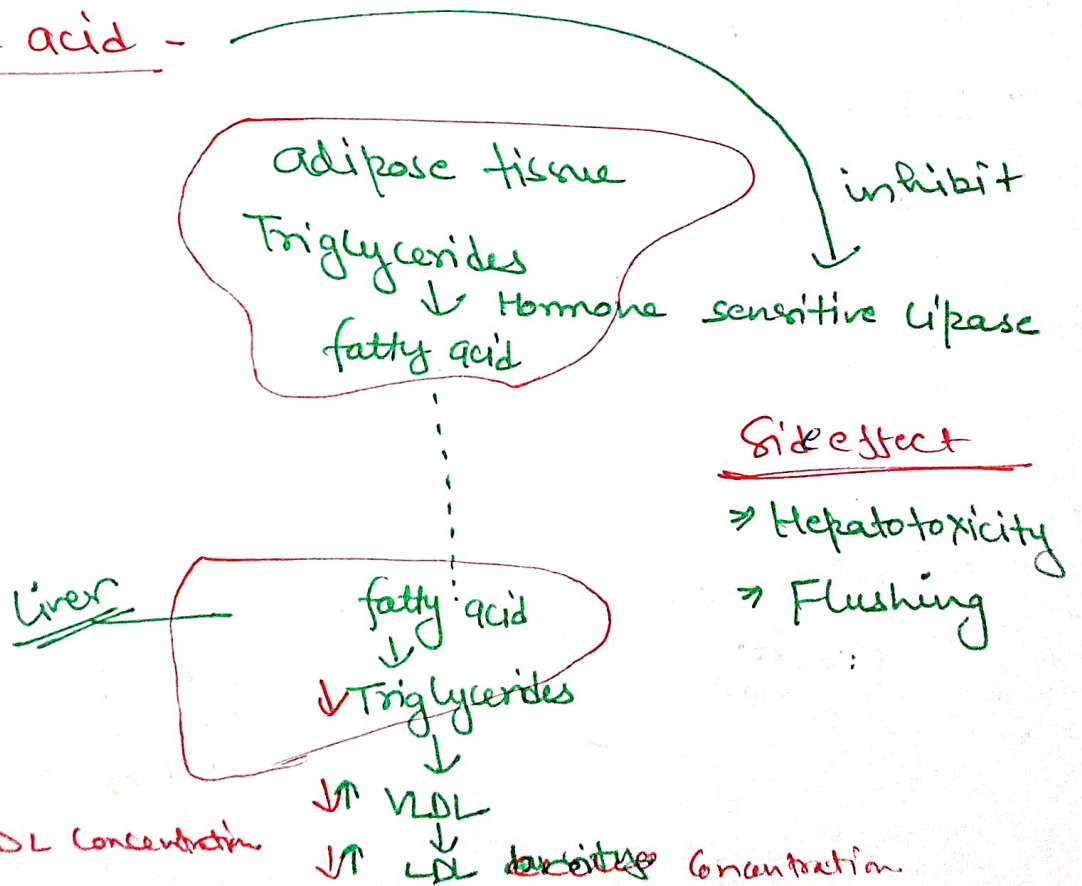 acid -
adipose tissue
inhibit
Triglycerides
↓ Hormone sensitive lipase
fatty acid
Side effect
⇒ Hepatotoxicity
Liver
fatty acid
⇒ Flushing
↓
↓Triglycerides
↓
↓↑ VLDL
↓
DL Concentration
↓↑ LDL Concentration